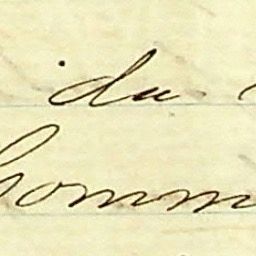 du
Comm